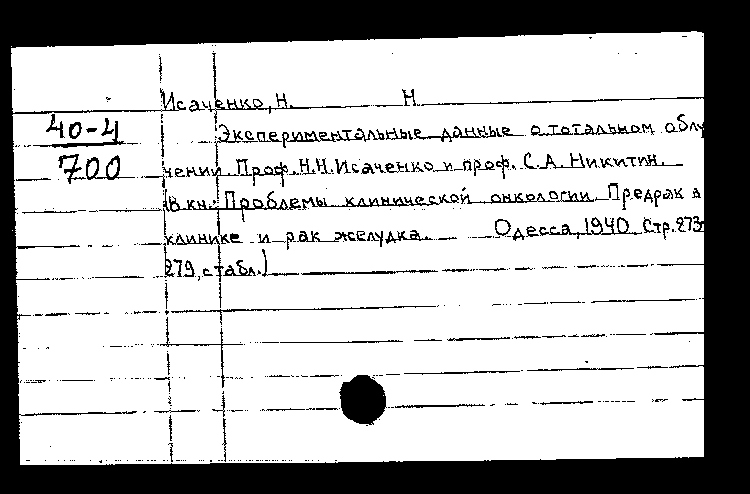 Исаченко, Н. Н
40-4
700
Экспериментальные данные о тотальном облу
чении. Проф. Н.Н. Исаченко и проф. С.А. Никитин.
(В кн.: Проблемы клинической онкологии. Предрак в
клинике и рак желудка. Одесса, 1940. Стр. 273-
279, с табл.)